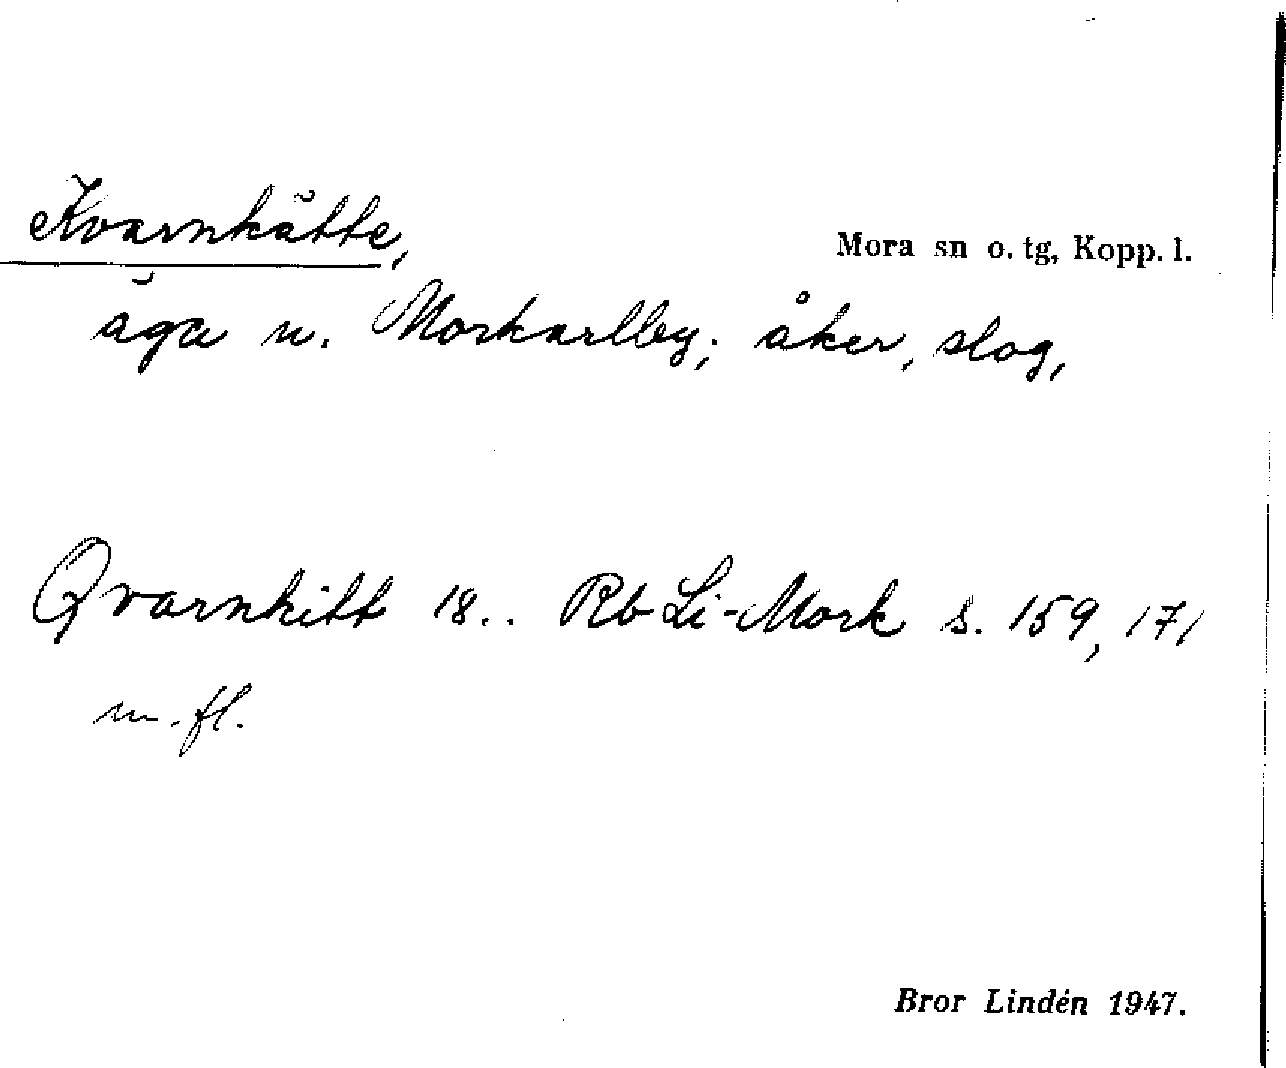 Kvarnkätte,
Mora sn o. tg, Kopp. l.
äga u. Morkarlby; åker, slog,
Qvarnkitt 18.. Rb Li-Mork s. 159, 171
m.fl.
Bror Lindén 1947.